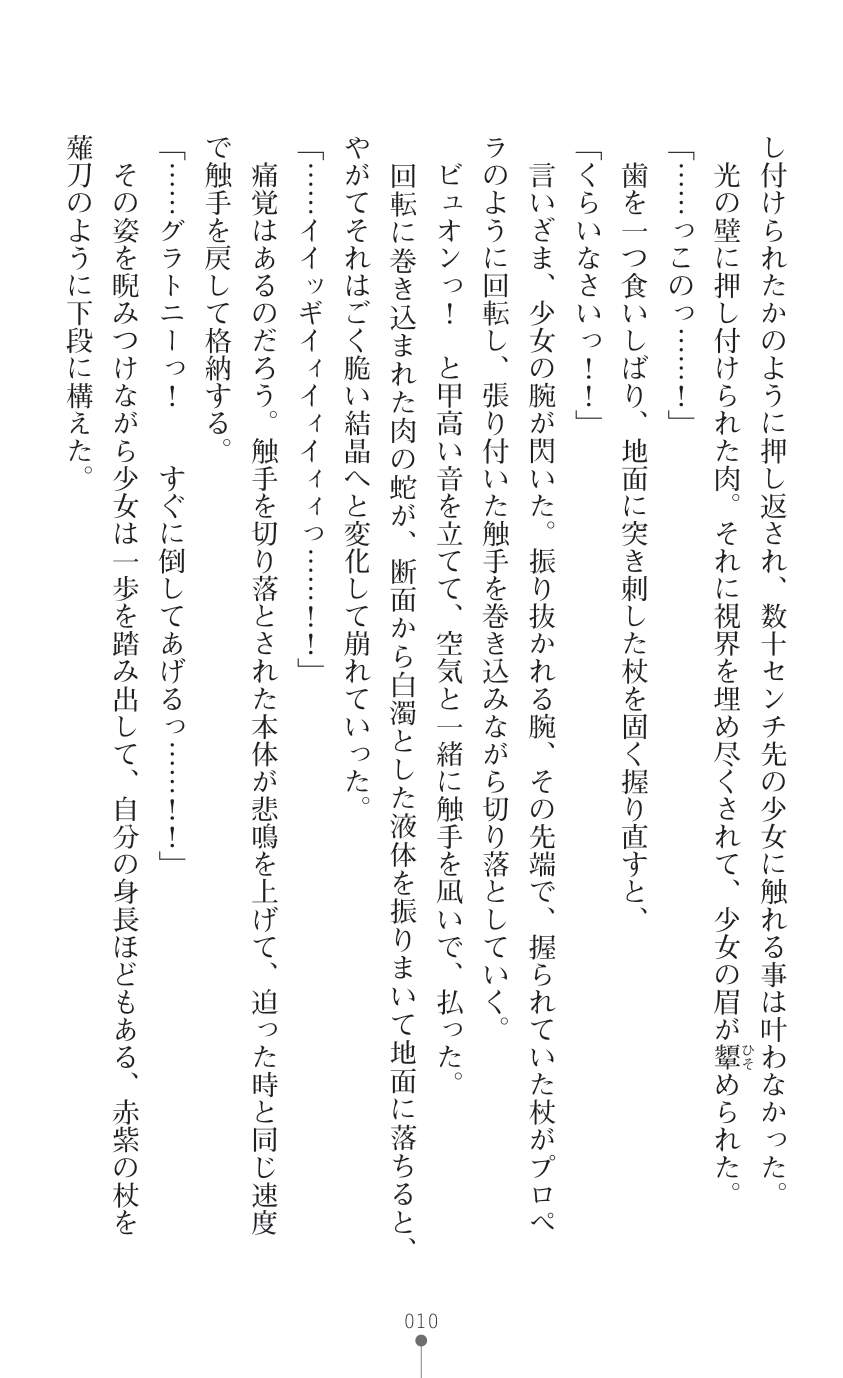 し付けられたかのように押し返され、数十センチ先の少女に触れる事は叶わなかった。
　光の壁に押し付けられた肉。それに視界を埋め尽くされて、少女の眉が顰められた。
ひそ
「……っこのっ……！」
　歯を一つ食いしばり、地面に突き刺した杖を固く握り直すと、
「くらいなさいっ！！」
　言いざま、少女の腕が閃いた。振り抜かれる腕、その先端で、握られていた杖がプロペ
ラのように回転し、張り付いた触手を巻き込みながら切り落としていく。
　ビュオンっ！　と甲高い音を立てて、空気と一緒に触手を凪いで、払った。
　回転に巻き込まれた肉の蛇が、断面から白濁とした液体を振りまいて地面に落ちると、
やがてそれはごく脆い結晶へと変化して崩れていった。
「……イイッギイィイィイィィっ……！！」
　痛覚はあるのだろう。触手を切り落とされた本体が悲鳴を上げて、迫った時と同じ速度
で触手を戻して格納する。
「……グラトニーっ！　すぐに倒してあげるっ……！！」
　その姿を睨みつけながら少女は一歩を踏み出して、自分の身長ほどもある、赤紫の杖を
薙刀のように下段に構えた。
010